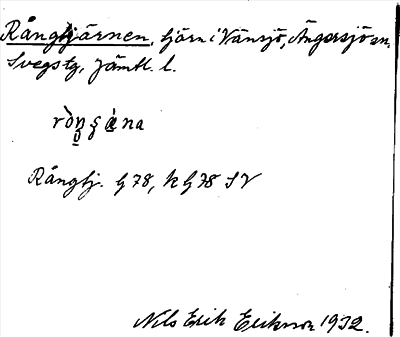 Rångtjärnen, tjärn i Vänsjö, Ängersjö sn,
Svegs tg, Jämtl. l.
Rångtj. G 78, k G 78 SV
Nils Erik Eriksson 1932.